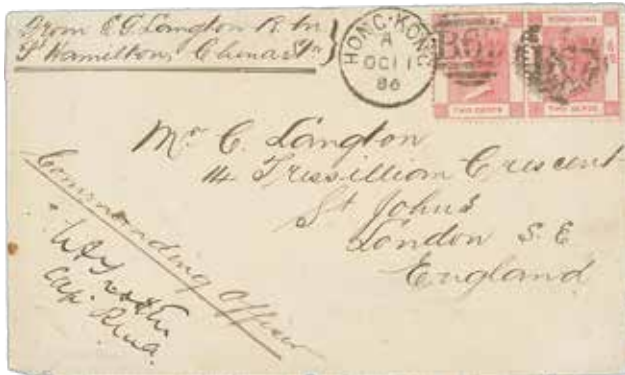 From C.G. Langton R. Mn
Hamilton, China Stn
HONG-KONG
A
OC 11
86
B62
TWO CENTS
HONG KONG
B62
TWO CENTS
Mr C. Langton
14 Tressillian Crescent
St Johns
London S.E
England
Commanding Officer
Cap.